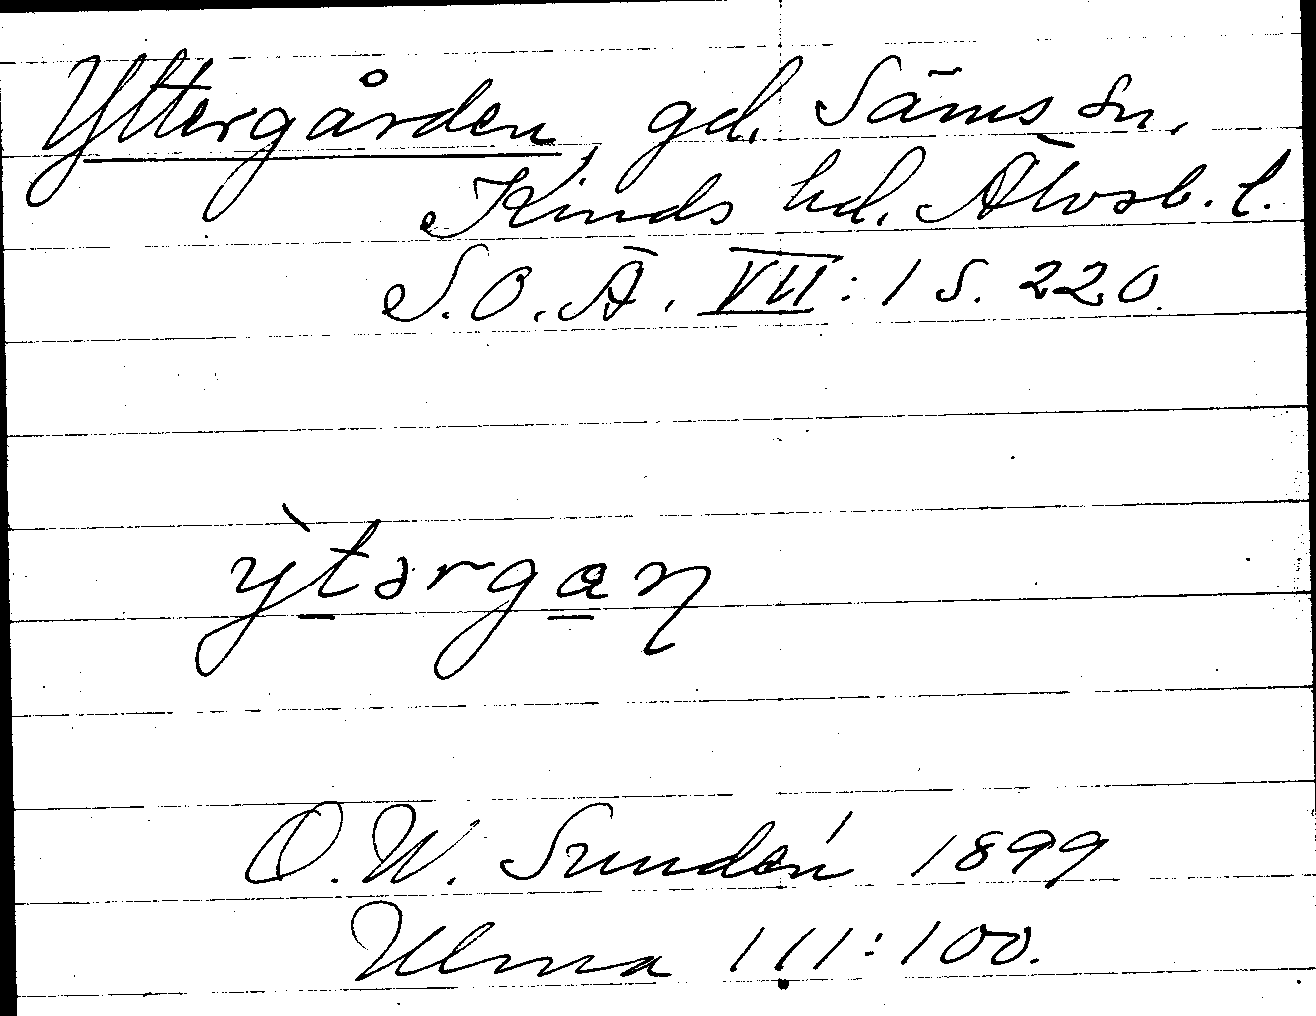 Yttergården, gd. Säms sn.
Kinds hd. Älvsb. l.
S.O.Ä. VII: 1 s. 220.
ỳtərgan
O.W. Sundén 1899
Ulma 111:100.